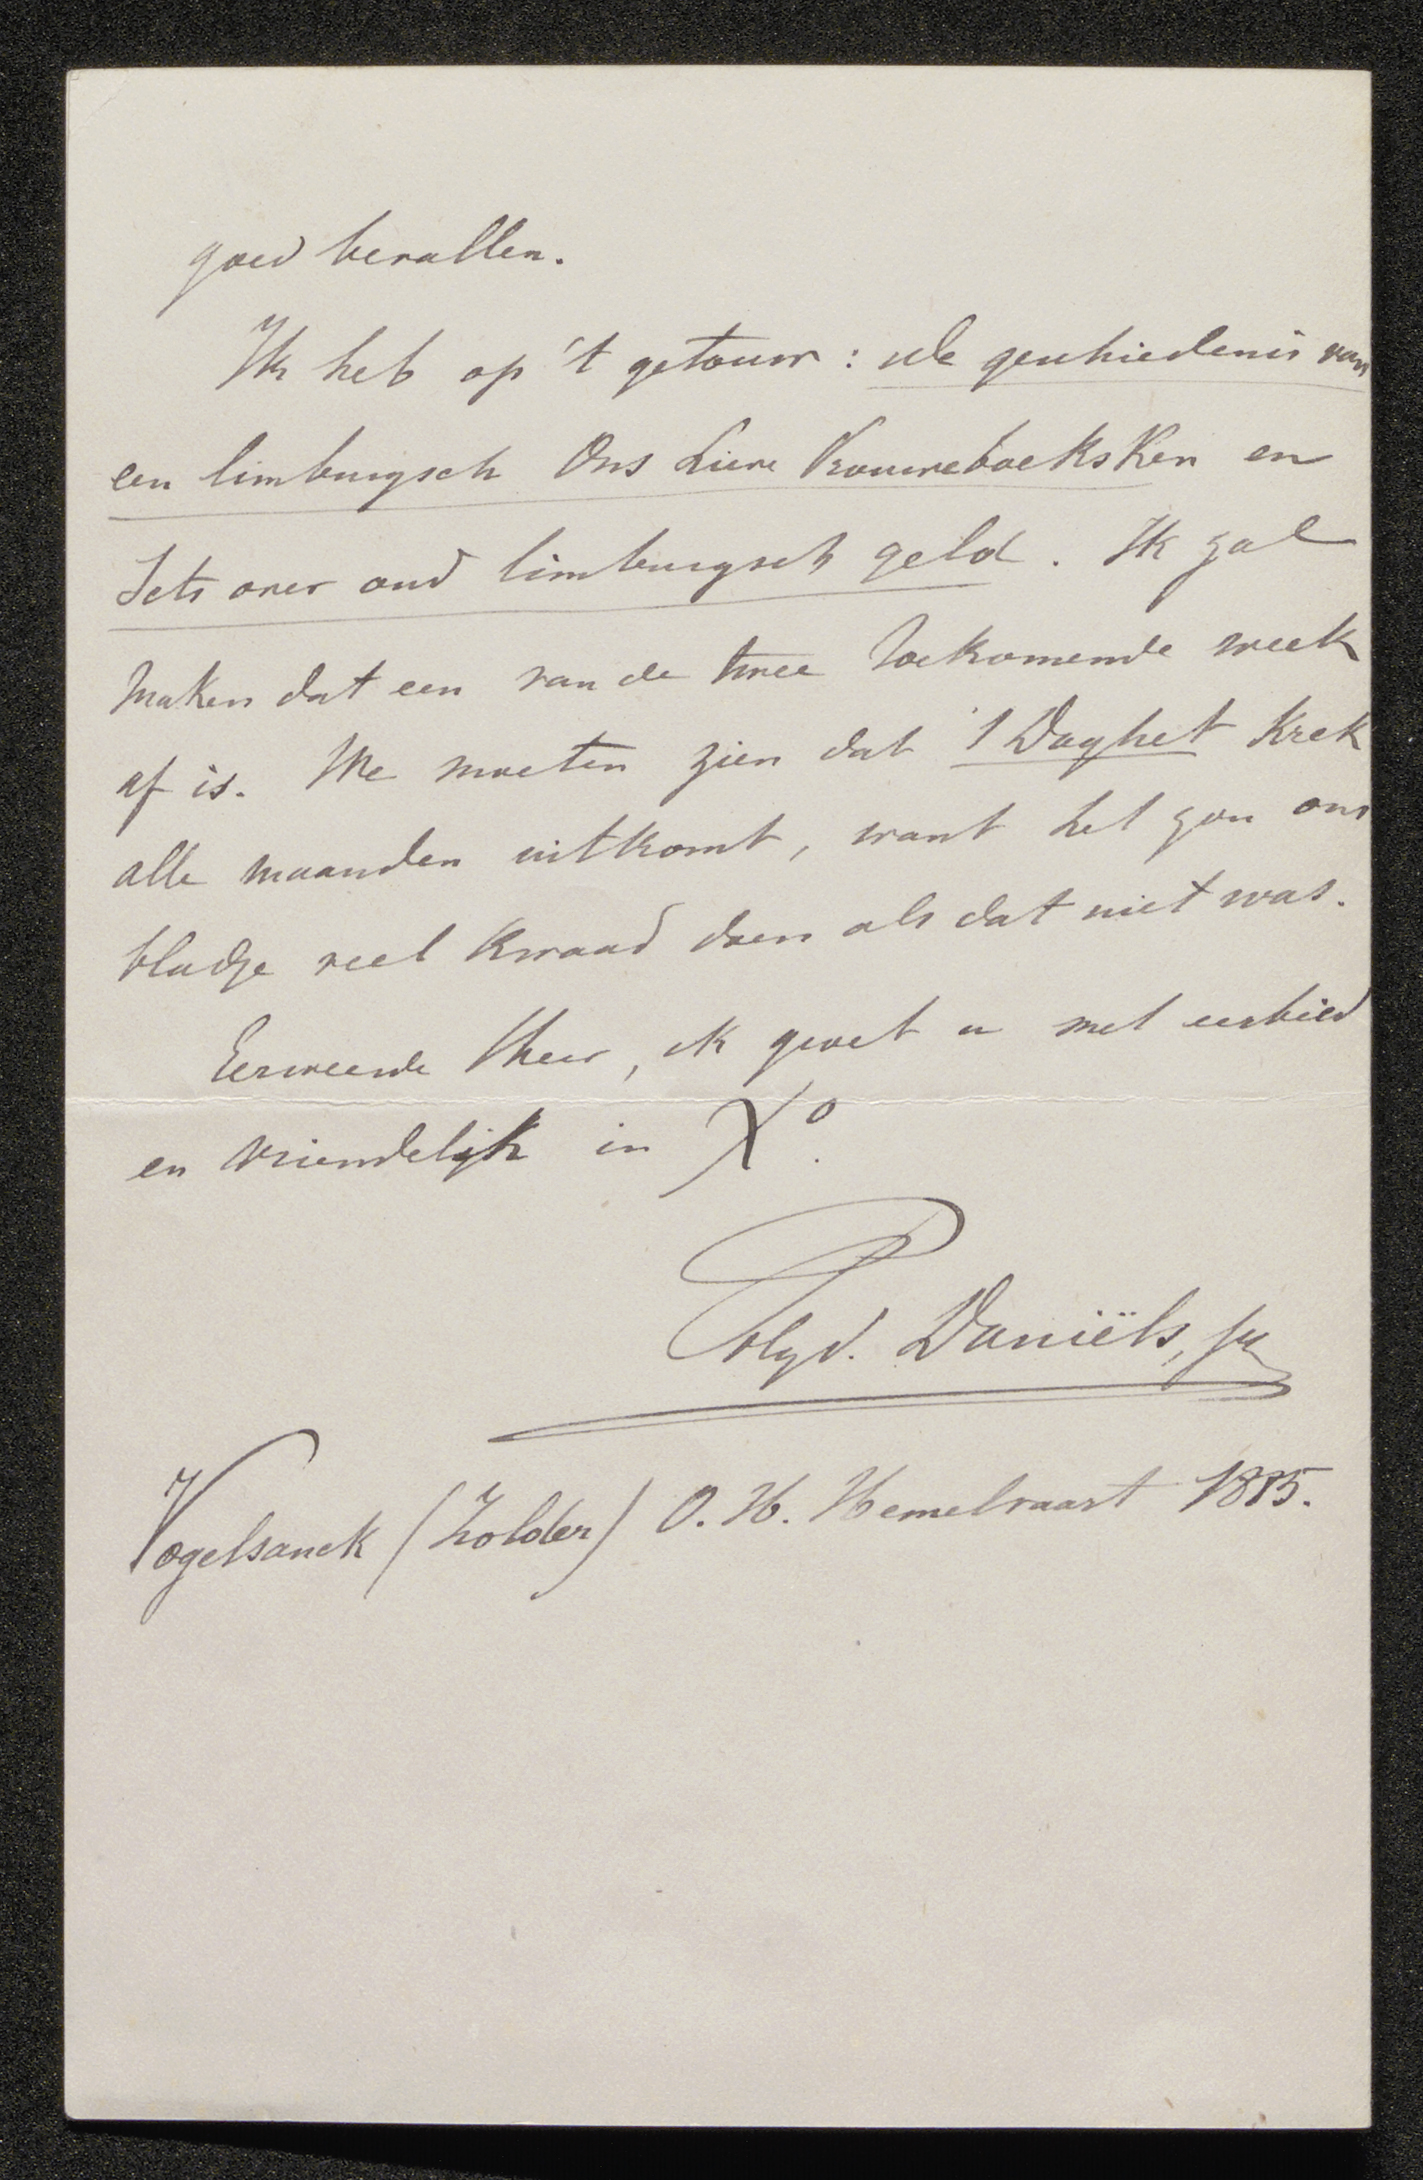 goed bevallen.
Ik heb op 't getouw : de geschiedenis van
een limburgsch Ons Lieve Vrouweboeksken en
Iets over oud limburgsch geld. Ik zal
maken dat een van de twee toekomende week
af is. We moeten zien dat 't Daghet krek
alle maanden uitkomt, want het zou ons
bladje veel kwaad doen als dat niet was.
Eerweerde Heer, ik groet u met eerbied
en vriendelijk in X°.
Polyd. Daniëls, pr
Vogelsanck (Zolder) O. H. Hemelvaart 1885.